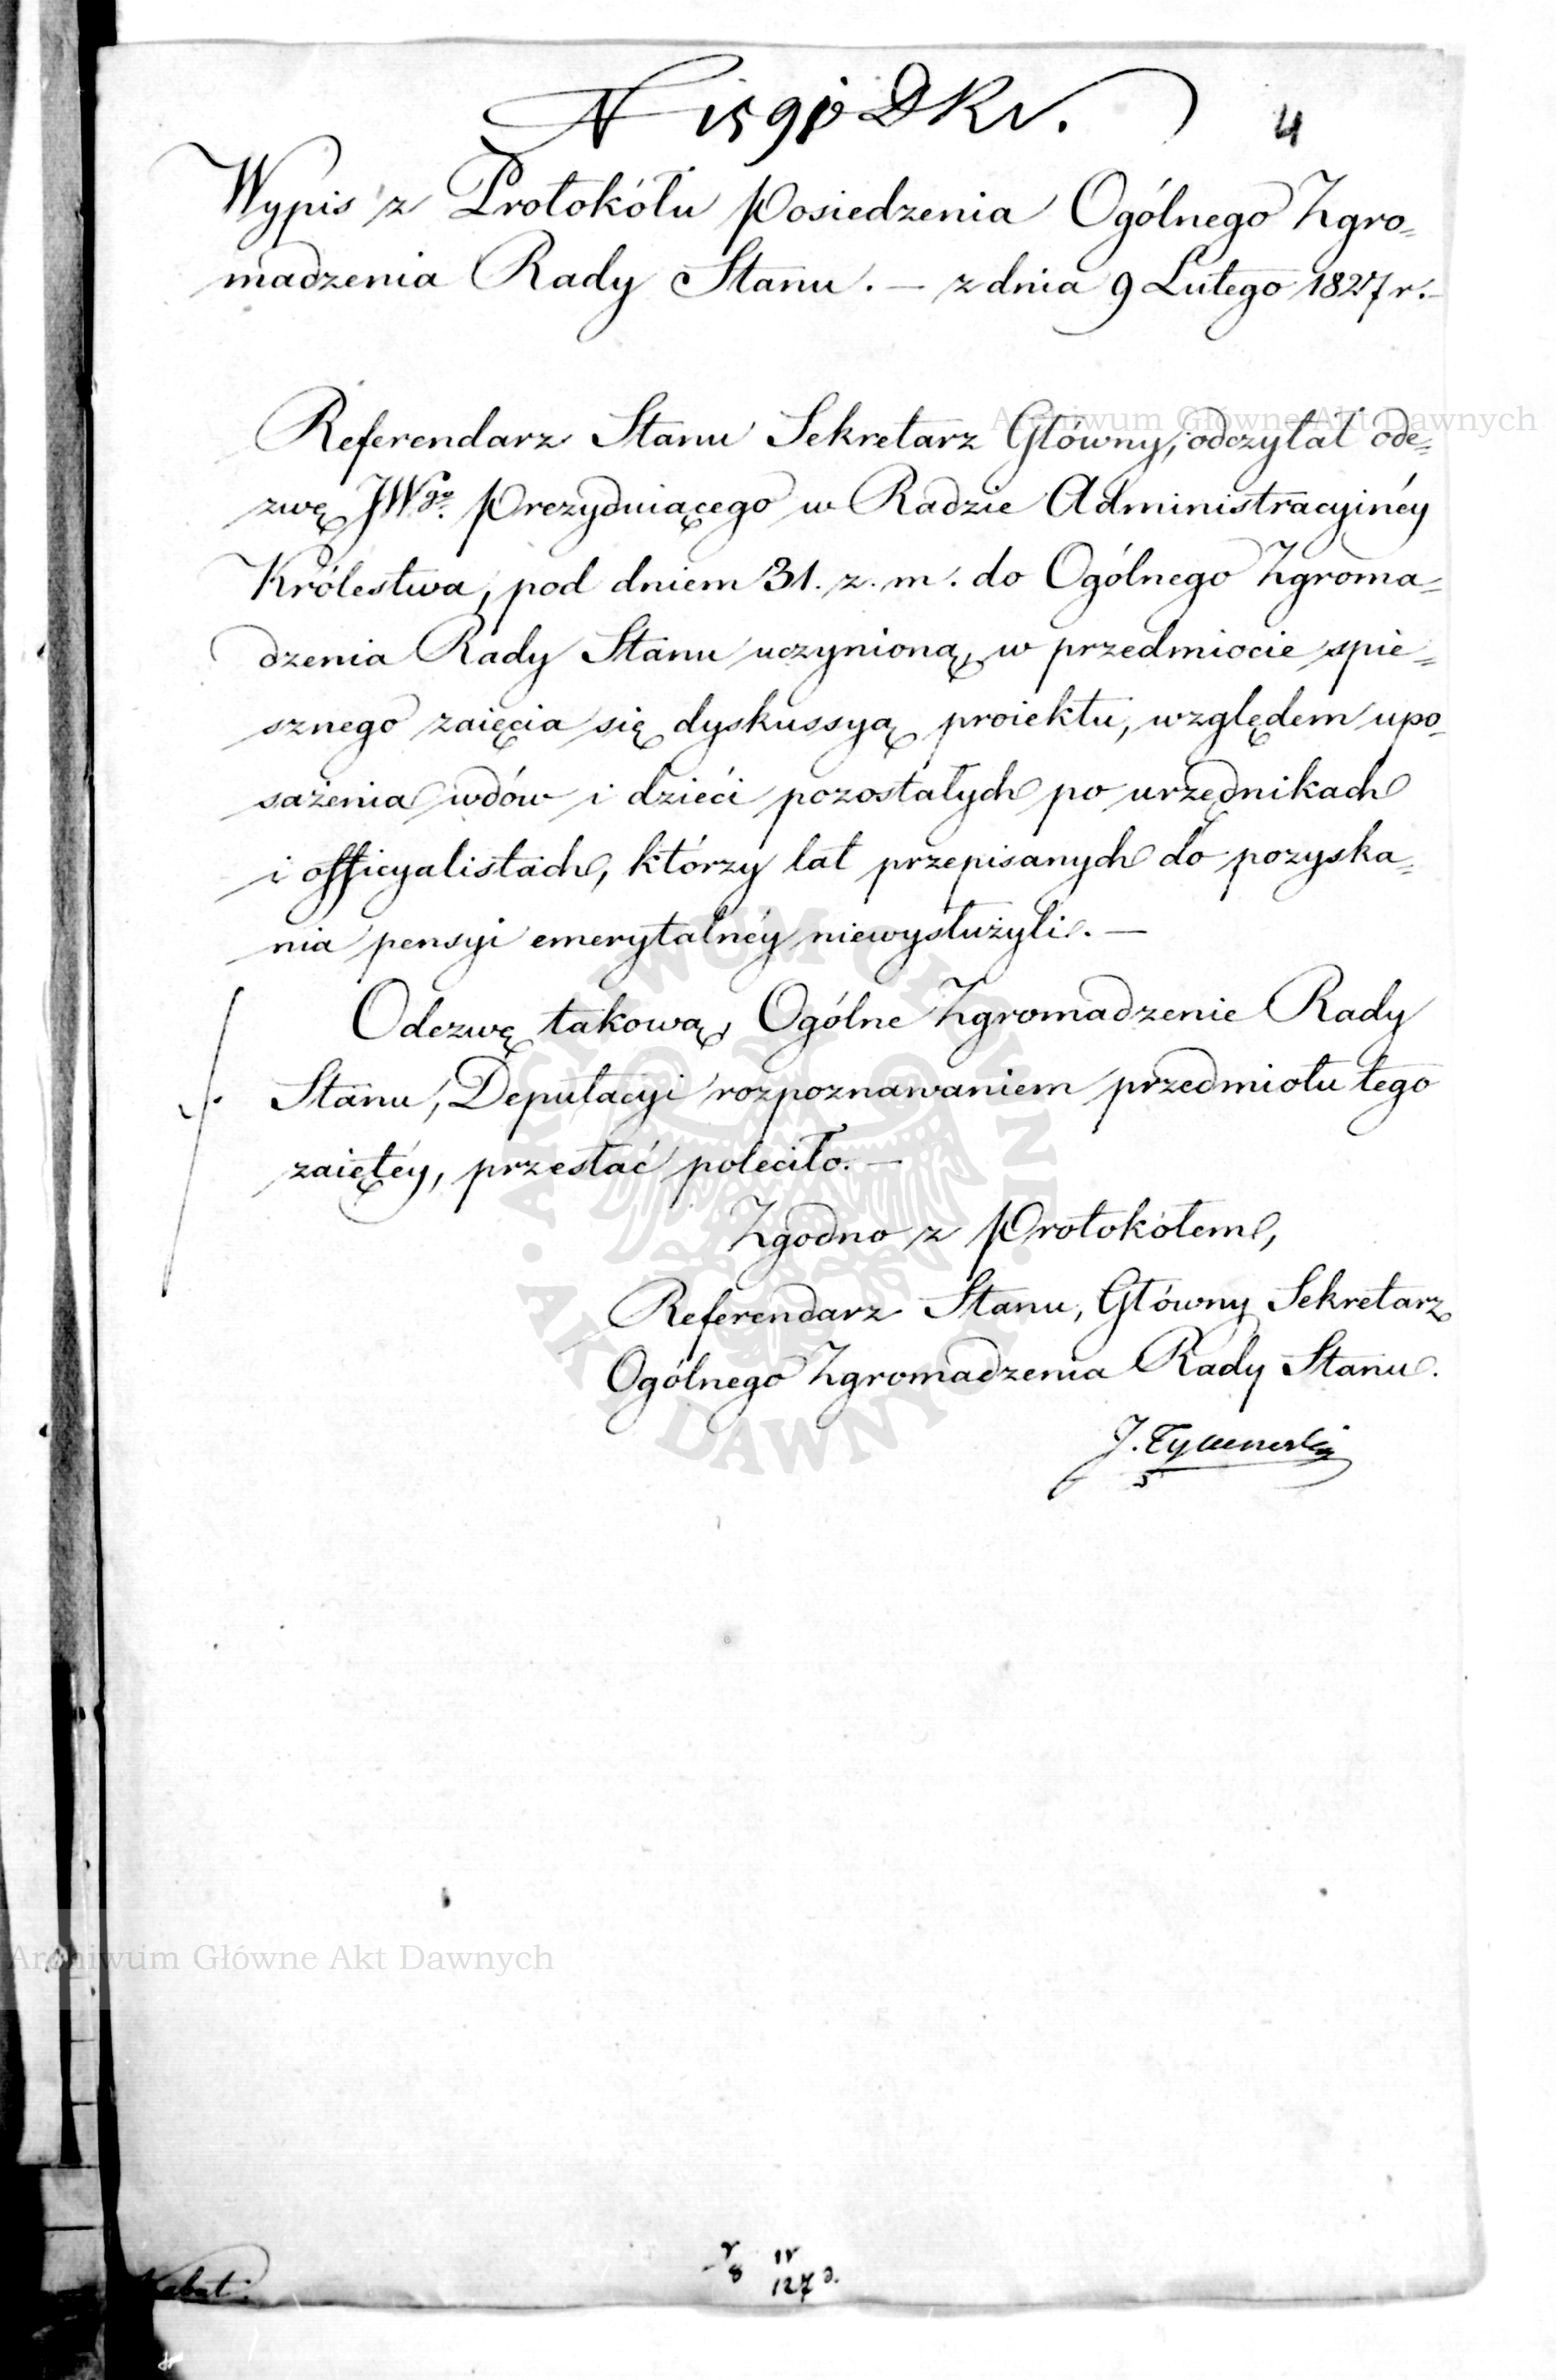 N 1591 DKr.
4
Wypis z Protokółu Posiedzenia Ogólnego Zgro=
madzenia Rady Stanu. — z dnia 9 Lutego 1827 r.
Archiwum Główne Akt Dawnych
Referendarz Stanu Sekretarz Główny, odczytał ode=
zwę JWgo. Prezyduiącego w Radzie Administracyinéy
Królestwa, pod dniem 31. z. m. do Ogólnego Zgroma=
dzenia Rady Stanu uczynioną, w przedmiocie spie=
sznego zaięcia się dyskussyą proiektu, względem upo=
sażenia wdów i dzieći pozostałych po urzędnikach
i officyalistach, którzy lat przepisanych do pozyska=
nia pensyi emerytalnéy niewysłużyli. —
Odezwę takową, Ogólne Zgromadzenie Rady
Stanu, Deputacyi rozpoznawaniem przedmiotu tego
zaiętéy, przesłać poleciło. —
Zgodno z Protokółem,
Referendarz Stanu, Główny Sekretarz
Ogólnego Zgromadzenia Rady Stanu.
ARCHIWUM GŁÓWNE AKT DAWNYCH
Archiwum Główne Akt Dawnych